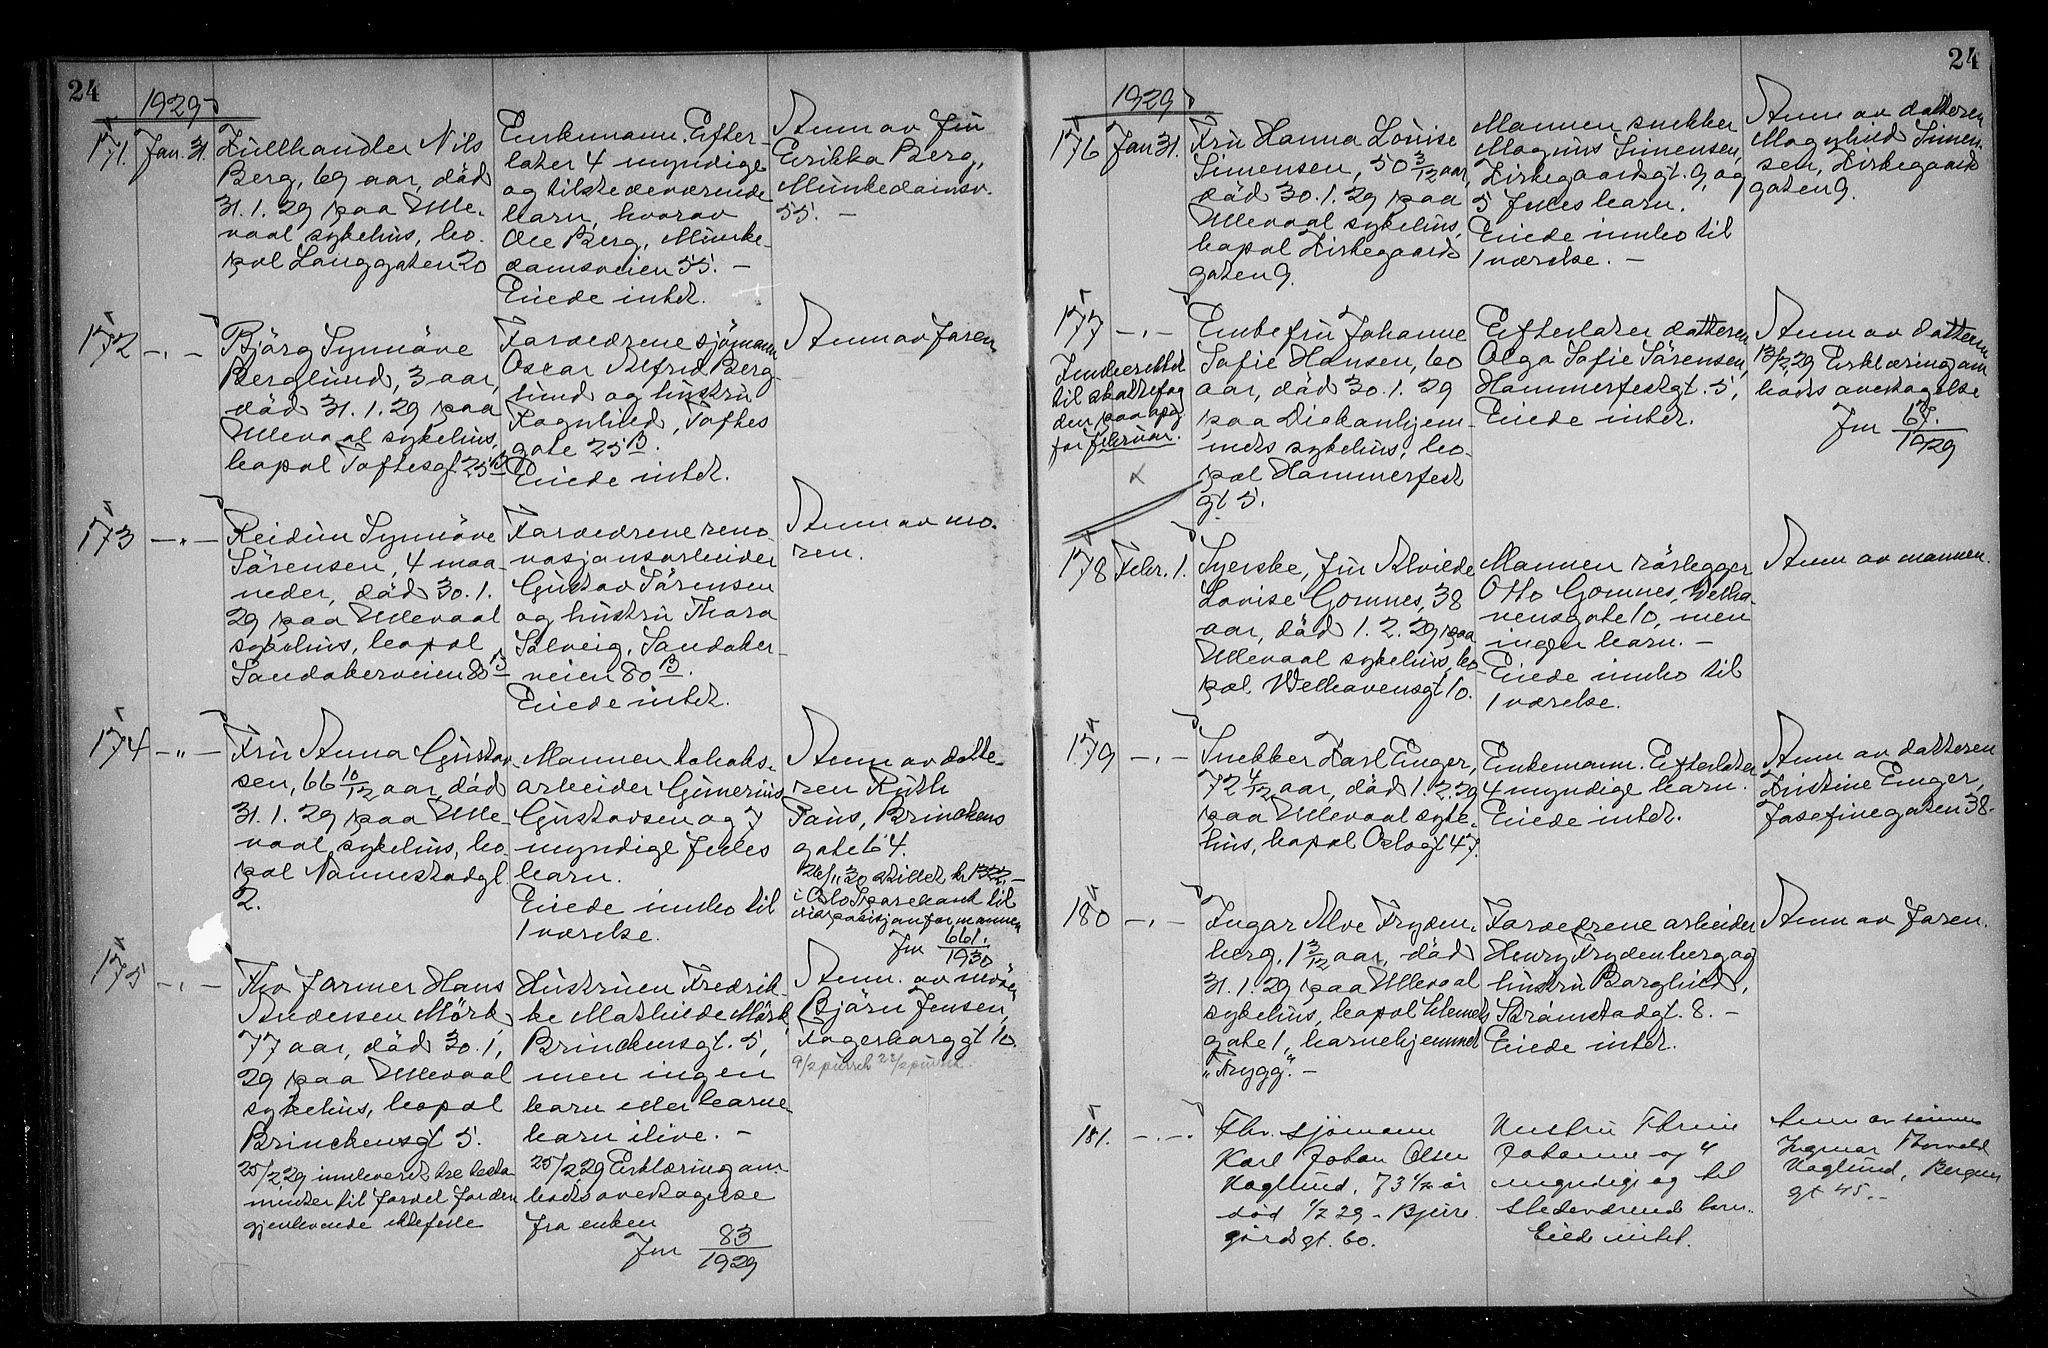 24
1929
171. Jan. 31.
Kullhandler Nils
Berg, 69 aar, död
31. 1. 29 paa Ulle-
vaal sykehus, bo-
pæl Langgaten 20
Enkemann. Efter-
later 4 myndige
og tilstedeværende
barn, hvorav
Ole Berg, Munke-
damsveien 55. —
Eiede intet.
Anm av fru
Erikka Berg,
Munkedamsv.
55. —
172 — " —
Bjørg Synnöve
Berglund, 3 aar,
död 31. 1. 29 paa
Ullevaal sykehus,
bopæl Toftesgt. 25 B
Forældrene sjømann
Oscar Alfred Berg-
lund og hustru
Ragnhild, Toftes
gate 25 B.
Eiede intet.
Anm av faren
173 — " —
Reidun Synnöve
Sörensen, 4 maa-
neder, död 30. 1.
29 paa Ullevaal
sykehus, bopæl
Sandakerveien 80 B
Forældrene reno-
vasjonsarbeider
Gustav Sörensen
og hustru Thora
Solveig, Sandaker-
veien 80 B.
Eiede intet.
Anm av mo-
ren.
174 — " —
Fru Anna Gustav-
sen, 66 10/12 aar, död
31. 1. 29 paa Ulle-
vaal sykehus, bo-
pæl Nannestadgt.
2.
Mannen tobaks-
arbeider Gunerius
Gustavsen og 7
myndige felles
barn.
Eiede innbo til
1 værelse.
Anm av datte-
ren Ruth
Faus, Brinckens
gate 64.
26/11 30 stillet kr 1322,-
i Oslo Sparebank til
disposisjon for mannen
Jnr 661./1930
175 — " —
Fhv. farmer Hans
Andersen Mörk
77 aar, död 30. 1.
29 paa Ullevaal
sykehus, bopæl
Brinckensgt 5.
25/2 29 innleveret tre testa-
menter til fordel for den
gjenlevende ektefelle
Hustruen Fredrik-
ke Mathilde Mörk
Brinckensgt. 5,
men ingen
barn eller barne-
barn ilive. —
25/2 29 Erklæring om
bods overtagelse
fra enken
Jnr 83/1929
Anm. av nevöen
Björn Jensen,
Fagerborggt 10.
9/2 purret 22/2 purret.
24
1929
176 Jan 31.
Fru Hanna Louise
Simensen, 50 3/12 aar,
död 30. 1. 29 paa
Ullevaal sykehus,
bopæl Kirkegaards
gaten 9.
Mannen snekker
Magnus Simensen,
Kirkegaardsgt. 9, og
5 felles barn.
Eiede innbo til
1 værelse. —
Anm av datteren
Magnhild Simen-
sen, Kirkegaards
gaten 9.
177 — " —
Innberettet
til skattefog
den paa opg.
for februar.
Enkefru Johanne
Sofie Hansen, 60
aar, död 30. 1. 29
paa Diakonhjem-
mets sykehus, bo-
pæl Hammerfest
gt 5.
Efterlater datteren
Olga Sofie Sörensen,
Hammerfestgt. 5,
Eiede intet.
Anm av datteren
13/2 29 Erklæring om
bods overtagelse
Jnr 67./1929
178 Febr. 1.
Syerske, fru Alvilde
Lovise Gomnes, 38
aar, död 1. 2. 29 paa
Ullevaal sykehus, bo-
pæl. Welhavensgt 10.
Mannen rörlegger
Otto Gomnes, Welha-
vensgate 10, men
ingen barn. —
Eiede innbo til
1 værelse.
Anm av mannen.
179 — " —
Snekker Karl Enger,
72 4/12 aar, död 1. 2. 29
paa Ullevaal syke-
hus, bopæl Oslogt 47.
Enkemann. Efterlater
4 myndige barn.
Eiede intet.
Anm av datteren
Kristine Enger,
Josefinegaten 38.
180 — " —
Ingar Alve Fryden-
berg, 1 3/12 aar, död
31. 1. 29 paa Ullevaal
sykehus, bopæl Klemets
gate 1, barnehjemmet
"Trygg". —
Forældrene arbeider
Henry Frydenberg og
hustru Borghild,
Strömstadgt. 8. —
Eiede intet.
Anm av faren.
181. — " —
Fhv. sjömann
Karl Johan Olsen
Haglund, 73 1/2 år
död 1/2 29 -
gt. 60.
Hustru
Johanne og 4
myndige og til
stedeværende barn.
Eiede intet.
Anm av sönnen
Ingmar Thorvald
Haglund, Bergens
gt 45. -